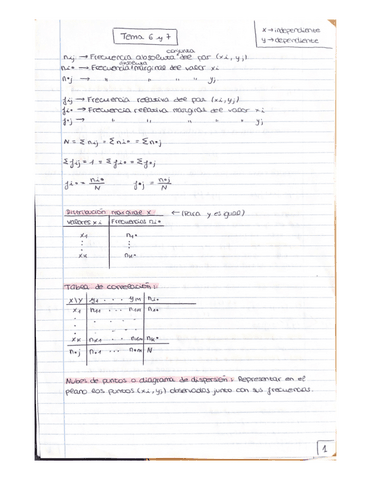 Tema 6 y 7
x → independiente
y → dependiente
conjunta
nij → Frecuencia absoluta del par (xi, yj)
absoluta
ni• → Frecuencia marginal del valor xi
n•j → " " " " yj
fij → Frecuencia relativa del par (xi, yj)
fi• → Frecuencia relativa marginal del valor xi
f•j → " " " " " yj
N = Σ nij = Σ ni• = Σ n•j
Σ fij = 1 = Σ fi• = Σ f•j
fi• = ni•/N f•j = n•j/N
Distribución marginal x: ← (Para y es igual)
Valores xi | Frecuencias ni•
x1 n1•
⋮ ⋮
xk nk•
Tabla de correlación:
X\Y y1 · · · ym ni•
x1 n11 · · · n1m n1•
. . . . . .
. . . . . .
xk nk1 · · · nkm nk•
n•j n•1 · · · n•m N
Nubes de puntos o diagrama de dispersión: Representar en el
plano los puntos (xi, yj) observados junto con sus frecuencias.
1